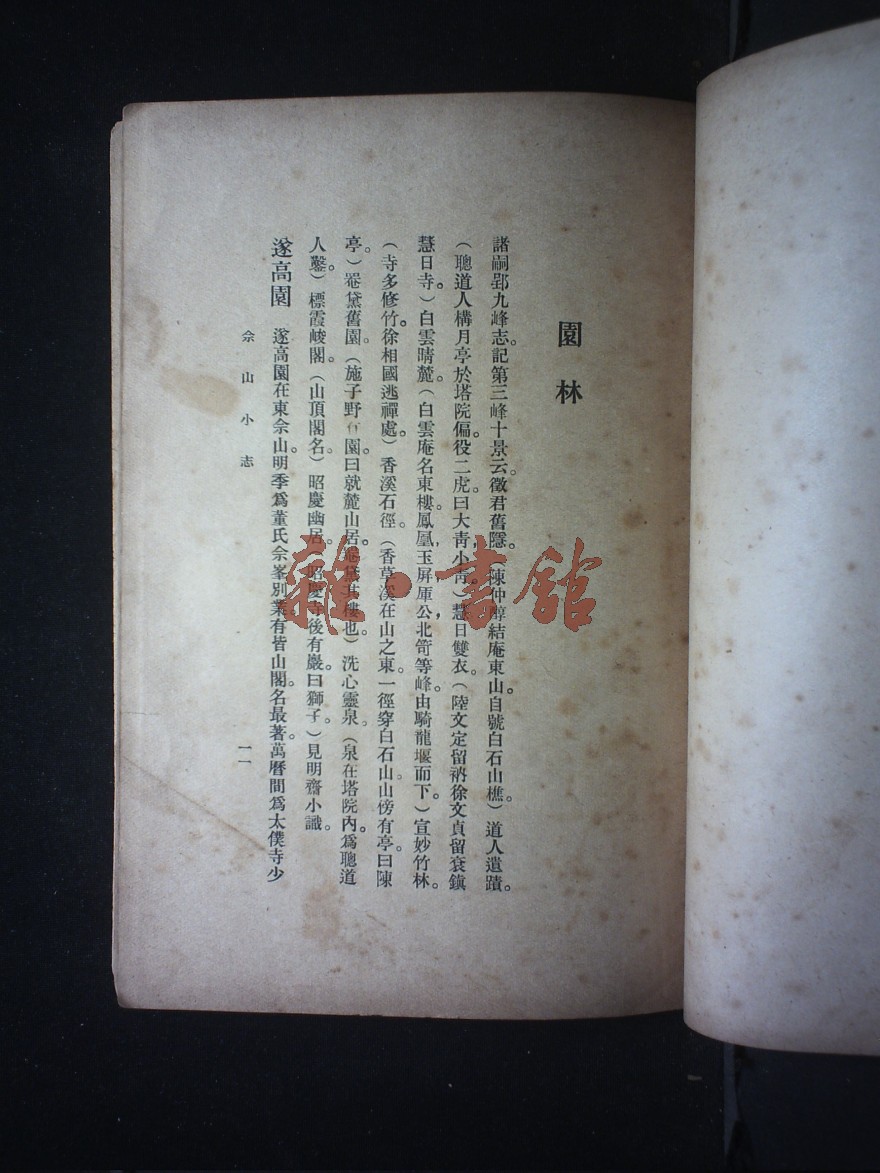 園林
諸嗣郢九峰志記第三峰十景云。徵君舊隱。(陳仲醇結庵東山。自號白石山樵)道人遺蹟。
(聰道人構月亭於塔院偏。役二虎。曰大青,小青。)慧日雙衣。(陸文定留衲,徐文貞留袞鎮
慧日寺。)白雲晴麓。(白雲庵名東樓。鳳凰,玉屏,厙公,北笴等峰。由騎龍堰而下。)宣妙竹林。
(寺多修竹。徐相國逃禪處。)香溪石徑。(香草溪在山之東。一徑穿白石山。山傍有亭。曰陳
亭。)罨黛舊園。(施子野作園。曰就麓山居。罨黛其樓也。)洗心靈泉。(泉在塔院內。為聰道
人鑿。)標霞峻閣。(山頂閣名)昭慶幽居。(昭慶寺後有巖。曰獅子。)見明齋小識。
遂高園 遂高園在東佘山。明季為董氏佘峯別業。有皆山閣。名最著。萬曆間為太僕寺少
佘山小志 一一
雜·書館